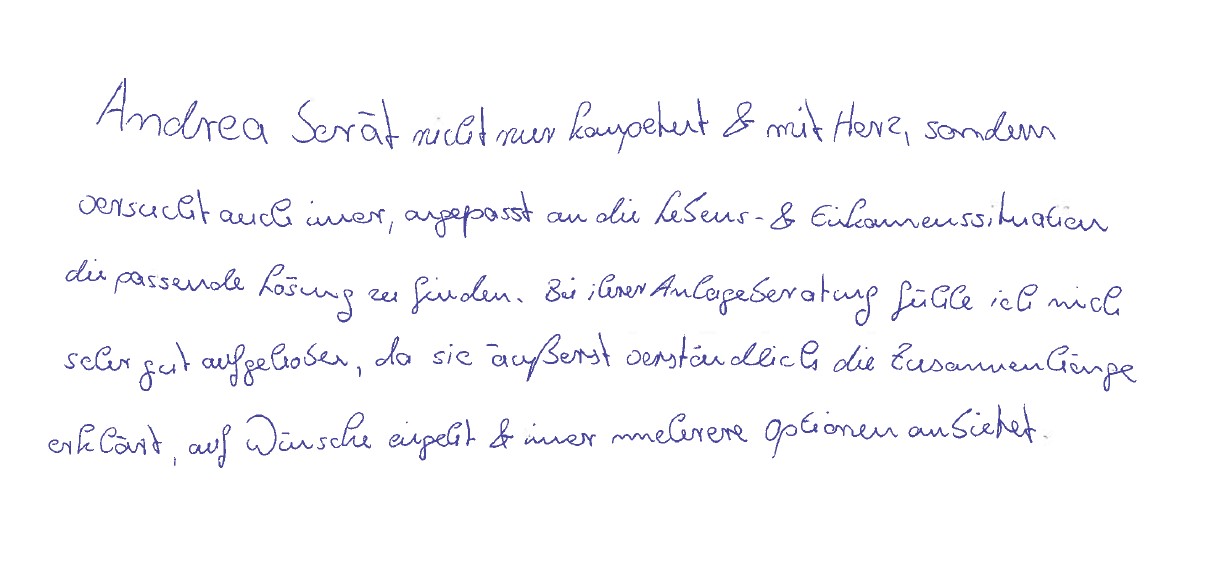 Andrea berät nicht nur kompetent & mit Herz, sondern
versucht auch immer, angepasst an die Lebens- & Einkommenssituation
die passende Lösung zu finden. Bei ihrer Anlageberatung fühle ich mich
sehr gut aufgehoben, da sie äußerst verständlich die Zusammenhänge
erklärt, auf Wünsche eingeht & immer mehrere Optionen anbietet.